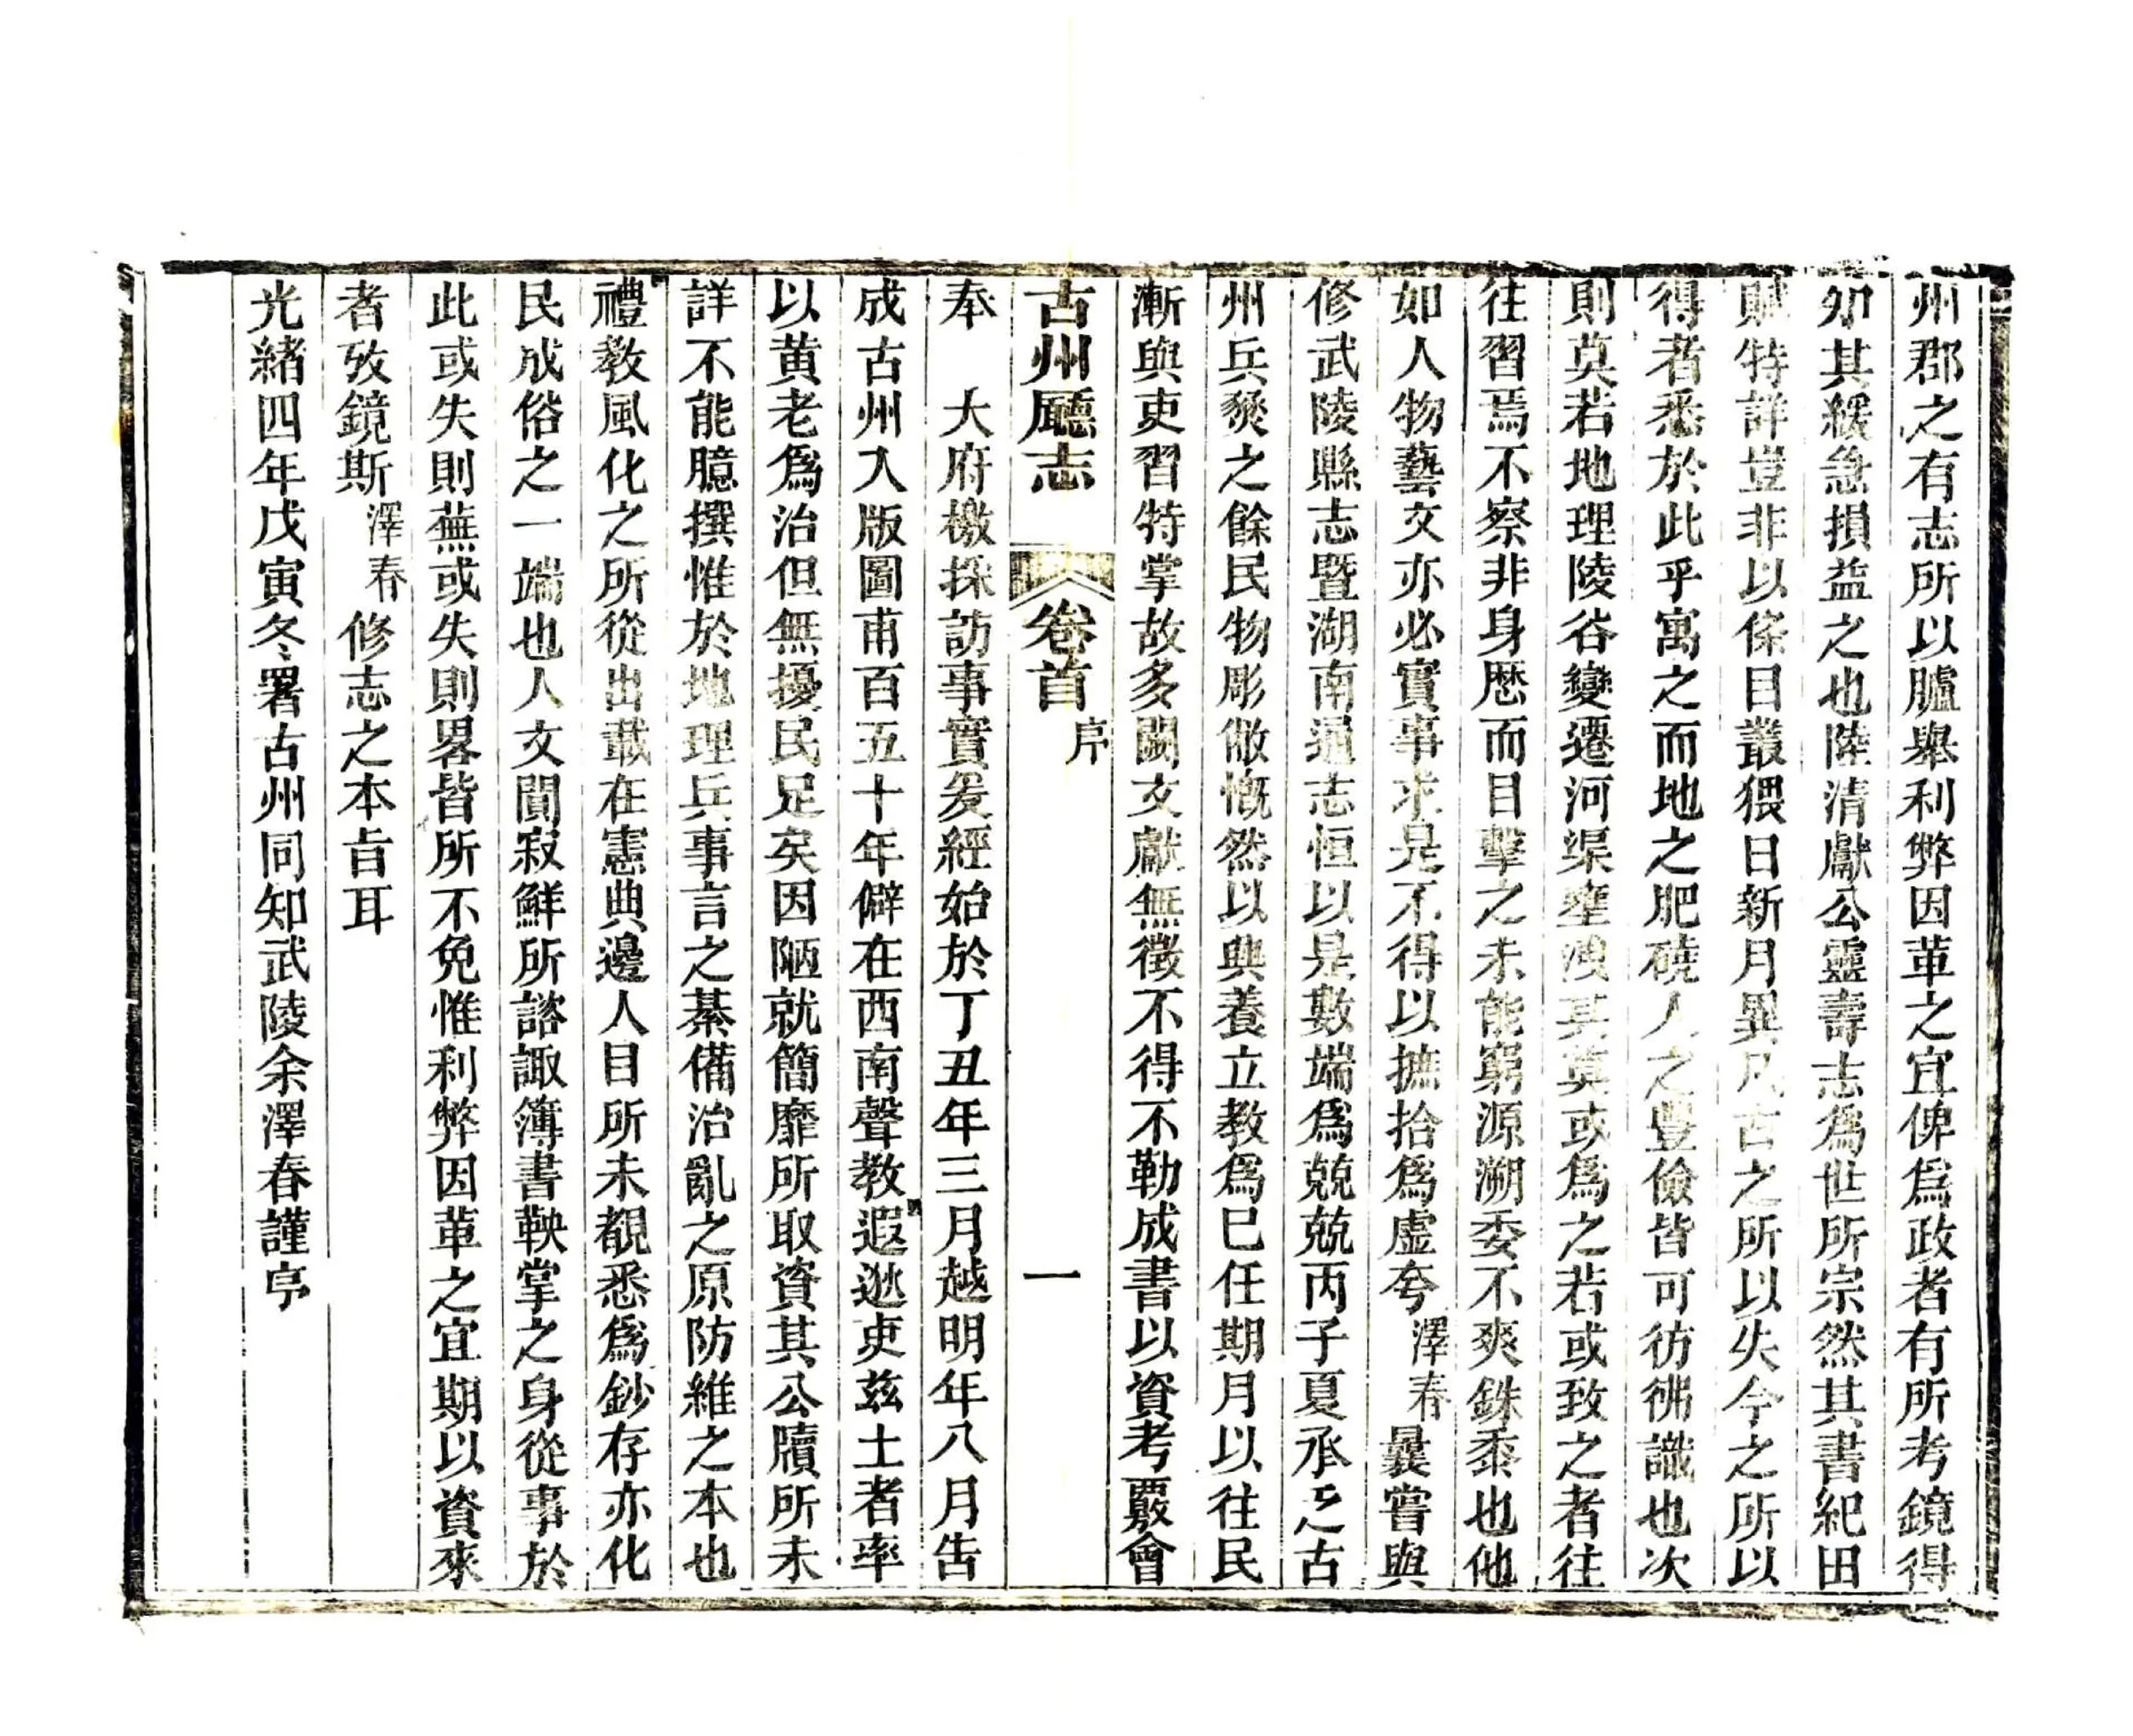 州郡之有志所以臚舉利弊因革之宜俾爲政者有所考鏡得
知其緩急損益之也陸清獻公靈壽志爲世所宗然其書紀田
賦特詳豈非以條目叢猥日新月異凡古之所以失今之所以
得者悉於此乎寓之而地之肥磽人之豐儉皆可彷彿識也次
則莫若地理陵谷變遷河渠壅洩其莫或爲之若或致之者往
往習焉不察非身歷而目擊之未能窮源溯委不爽銖黍也他
如人物藝文亦必實事求是不得以摭拾爲虛夸澤春曩嘗與
修武陵縣志暨湖南通志恒以是數端爲兢兢丙子夏承乏古
州兵燹之餘民物彫敝慨然以興養立教爲巳任期月以往民
漸與吏習特掌故多闕文獻無徵不得不勒成書以資考覈會
古州廳志 卷首 序 一
奉 大府檄採訪事實爰經始於丁丑年三月越明年八月告
成古州入版圖甫百五十年僻在西南聲教遐逖吏茲土者率
以黄老爲治但無擾民足矣因陋就簡靡所取資其公牘所未
詳不能臆撰惟於地理兵事言之綦備治亂之原防維之本也
禮教風化之所從出載在憲典邊人目所未覩悉爲鈔存亦化
民成俗之一端也人文闃寂鮮所諮諏簿書鞅掌之身從事於
此或失則蕪或失則畧皆所不免惟利弊因革之宜期以資來
者攷鏡斯澤春修志之本旨耳
光緒四年戊寅冬署古州同知武陵余澤春謹序